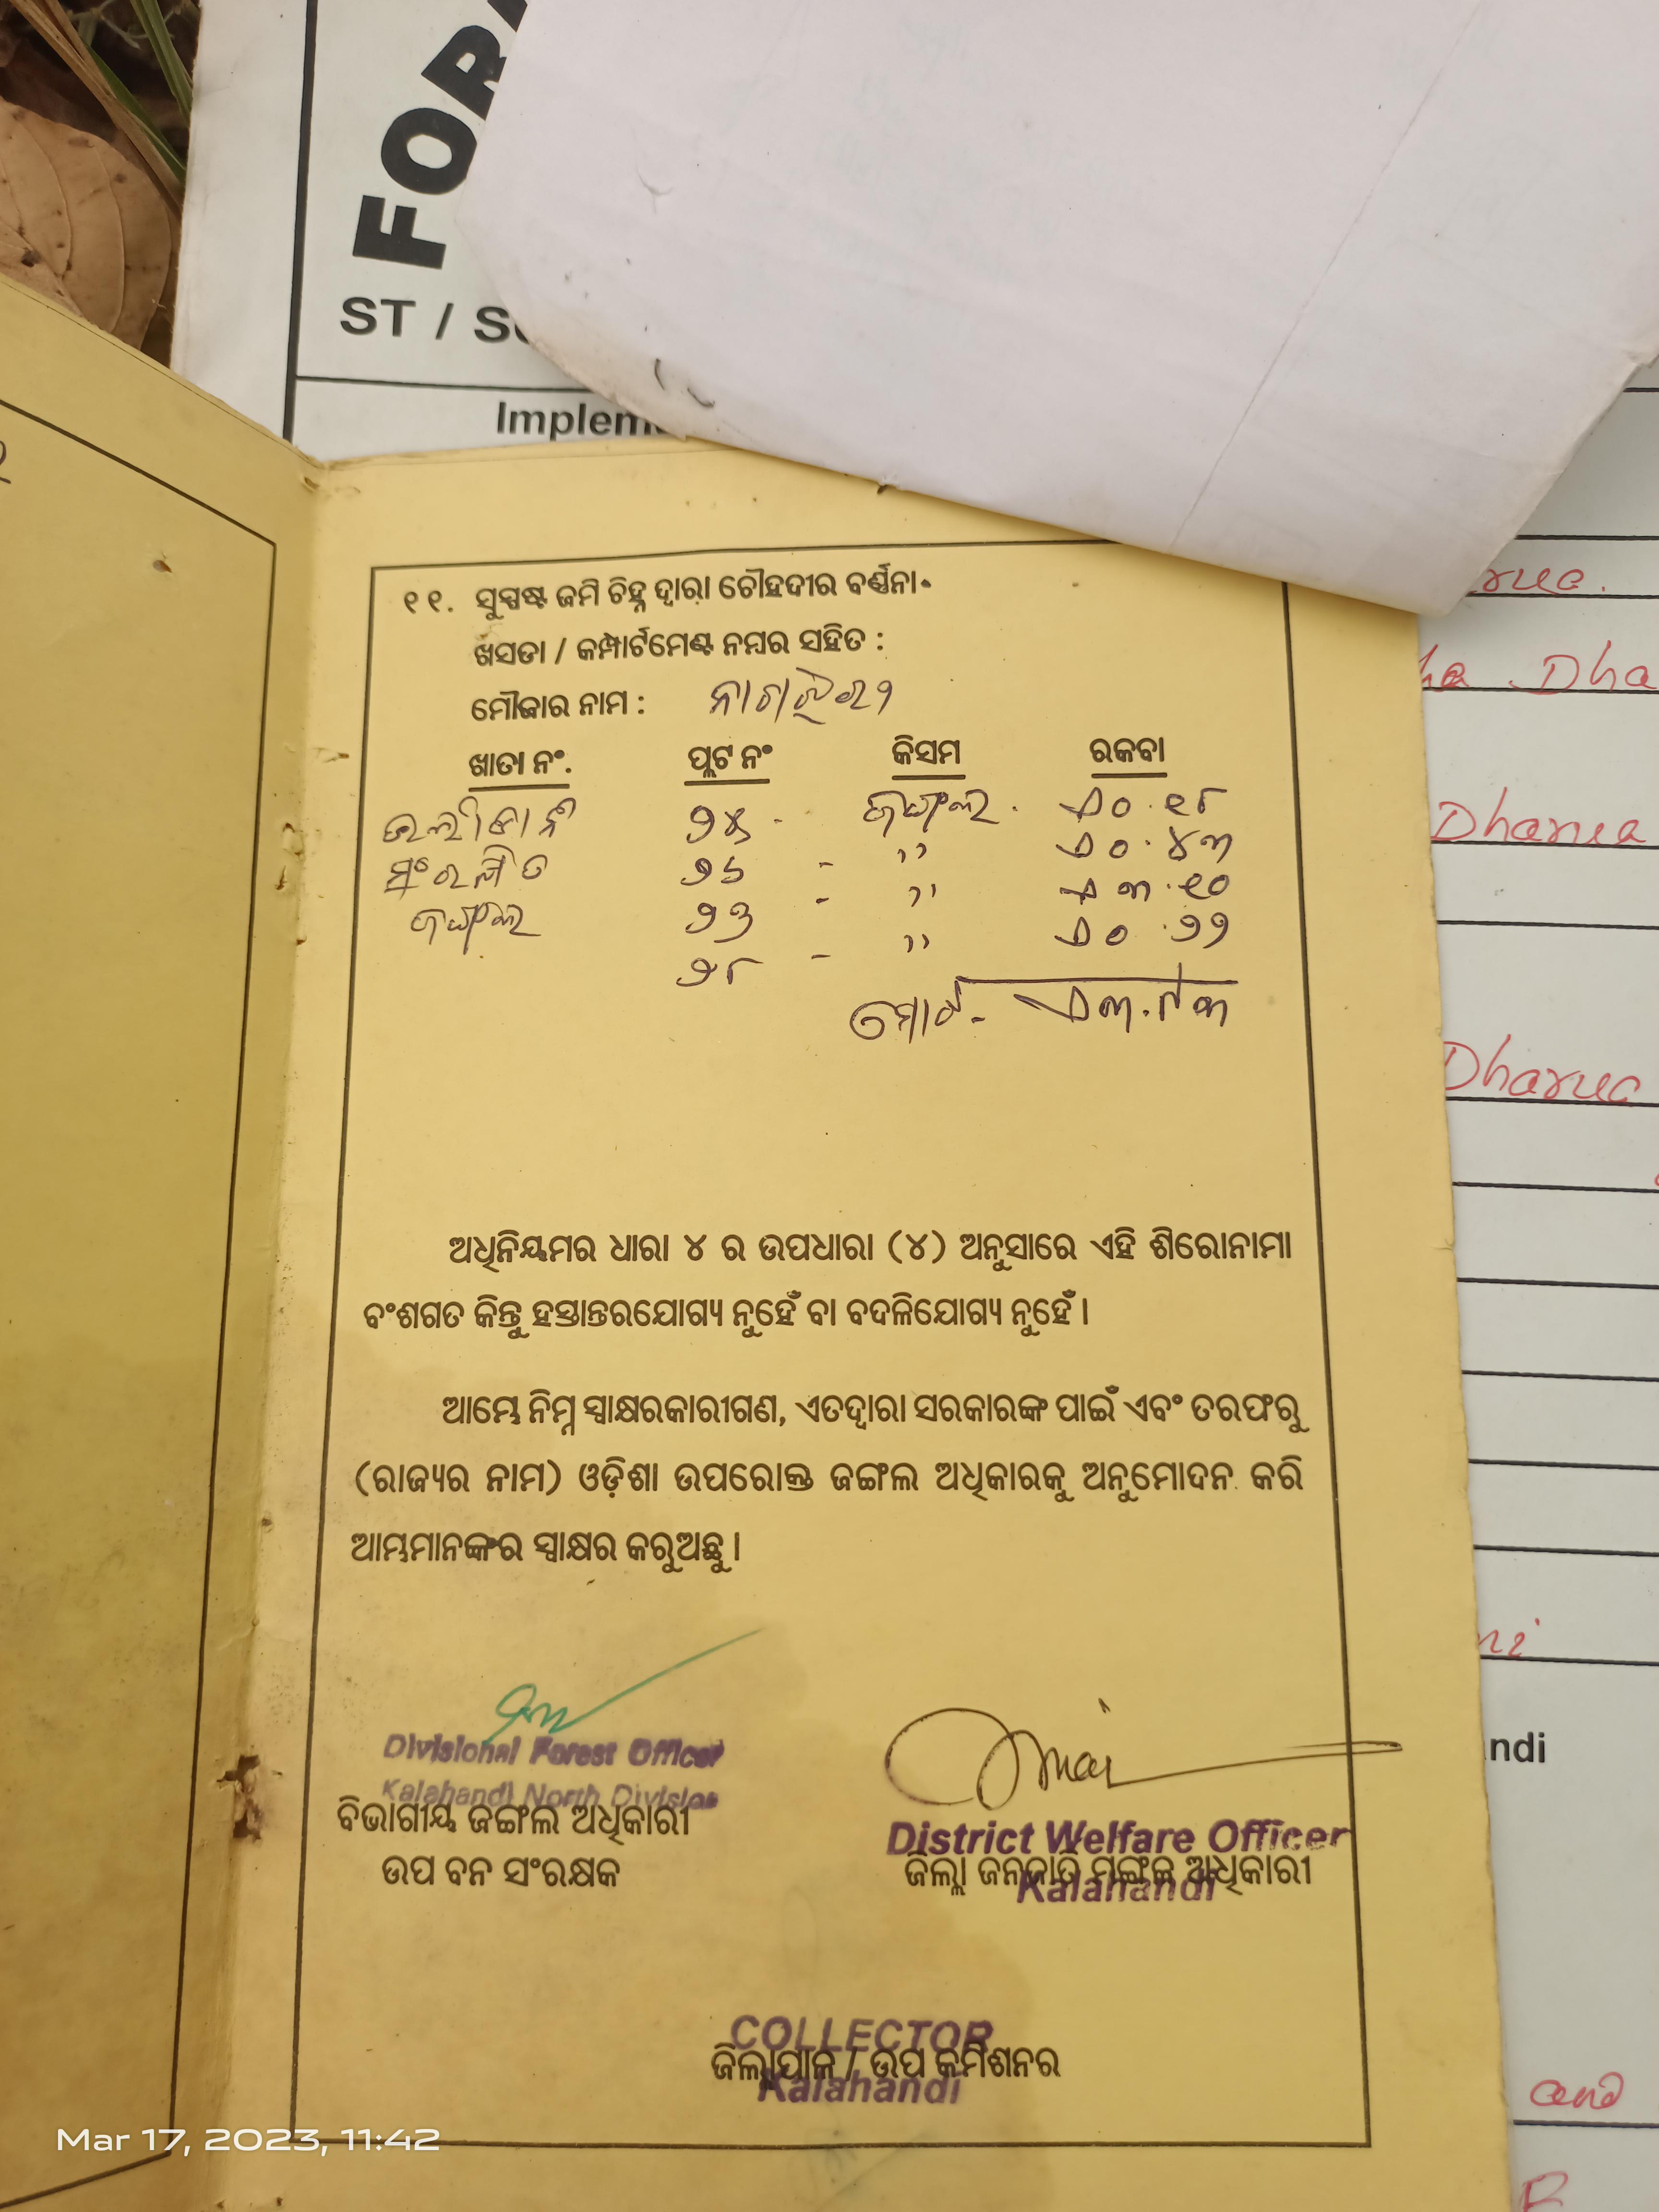 FOR
ST / S
Implem
୧୧. ସୁସ୍ପଷ୍ଟ ଜମି ଚିହ୍ନ ଦ୍ୱାରା ଚୌହଦୀର ବର୍ଣ୍ଣନା
ଖସଡା / କମ୍ପାର୍ଟମେଣ୍ଟ ନମ୍ବର ସହିତ :
ମୌଜାର ନାମ :
ଖାତା ନଂ. ପ୍ଲଟ ନଂ କିସମ ରକବା
୨୪ - ଜଙ୍ଗଲ - ଏ୦.୧୮
ସଂରକ୍ଷିତ ୨୬ - " ଏ୦.୪୩
ଜଙ୍ଗଲ ୨୭ - " ଏ୩.୧୦
୨୮ - " ଏ୦.୨୨
ମୋଟ - ଏ୩.୯୩
ଅଧିନିୟମର ଧାରା ୪ ର ଉପଧାରା (୪) ଅନୁସାରେ ଏହି ଶିରୋନାମା
ବଂଶଗତ କିନ୍ତୁ ହସ୍ତାନ୍ତରଯୋଗ୍ୟ ନୁହେଁ ବା ବଦଳିଯୋଗ୍ୟ ନୁହେଁ ।
ଆମ୍ଭେ ନିମ୍ନ ସ୍ୱାକ୍ଷରକାରୀଗଣ, ଏତଦ୍ୱାରା ସରକାରଙ୍କ ପାଇଁ ଏବଂ ତରଫରୁ
(ରାଜ୍ୟର ନାମ) ଓଡ଼ିଶା ଉପରୋକ୍ତ ଜଙ୍ଗଲ ଅଧିକାରକୁ ଅନୁମୋଦନ କରି
ଆମ୍ଭମାନଙ୍କର ସ୍ୱାକ୍ଷର କରୁଅଛୁ ।
Divisional Forest Officer
Kalahandi North Division
ବିଭାଗୀୟ ଜଙ୍ଗଲ ଅଧିକାରୀ
ଉପ ବନ ସଂରକ୍ଷକ
District Welfare Officer
ଜିଲ୍ଲା ଜନଜାତି ମଙ୍ଗଳ ଅଧିକାରୀ
Kalahandi
COLLECTOR
ଜିଲ୍ଲାପାଳ / ଉପ କମିଶନର
Kalahandi
Dha
Dharua
Dharua
ndi
and
Mar 17, 2023, 11:42